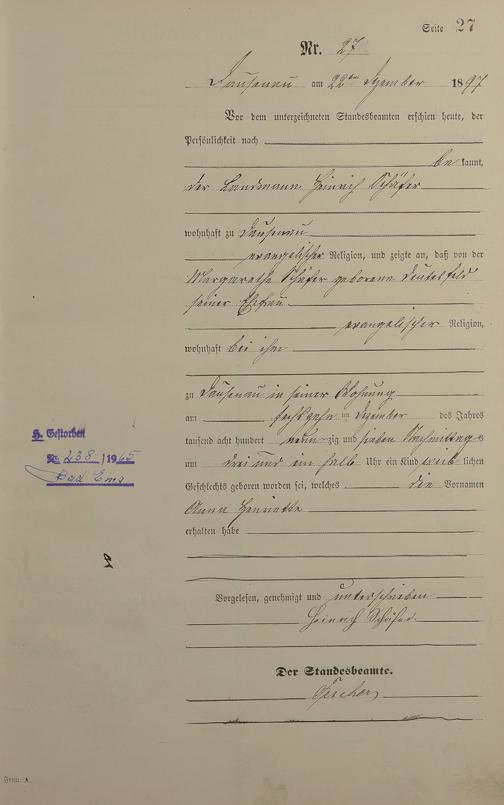 Seite 27
Nr. 27
Dausenau am 22ten Dezember 1897
Vor dem unterzeichneten Standesbeamten erschien heute, der
Persönlichkeit nach
be kannt,
der Landmann Heinrich Schäfer
wohnhaft zu Dausenau
evangelischer Religion, und zeigte an, daß von der
Margarethe Schäfer geborene
seiner Ehefrau
evangelischer Religion,
wohnhaft bei ihm
zu Dausenau in seiner Wohnung
am sechszehn ten Dezember des Jahres
tausend acht hundert neun zig und sieben Nachmittags
um drei und ein halb Uhr ein Kind weib lichen
Geschlechts geboren worden sei, welches die Vornamen
Anna Henriette
erhalten habe
Vorgelesen, genehmigt und unterschrieben
Heinrich Schäfer
Der Standesbeamte.
H. Gestorben
Nr. 238 / 1965
Bad Ems
Form. A.